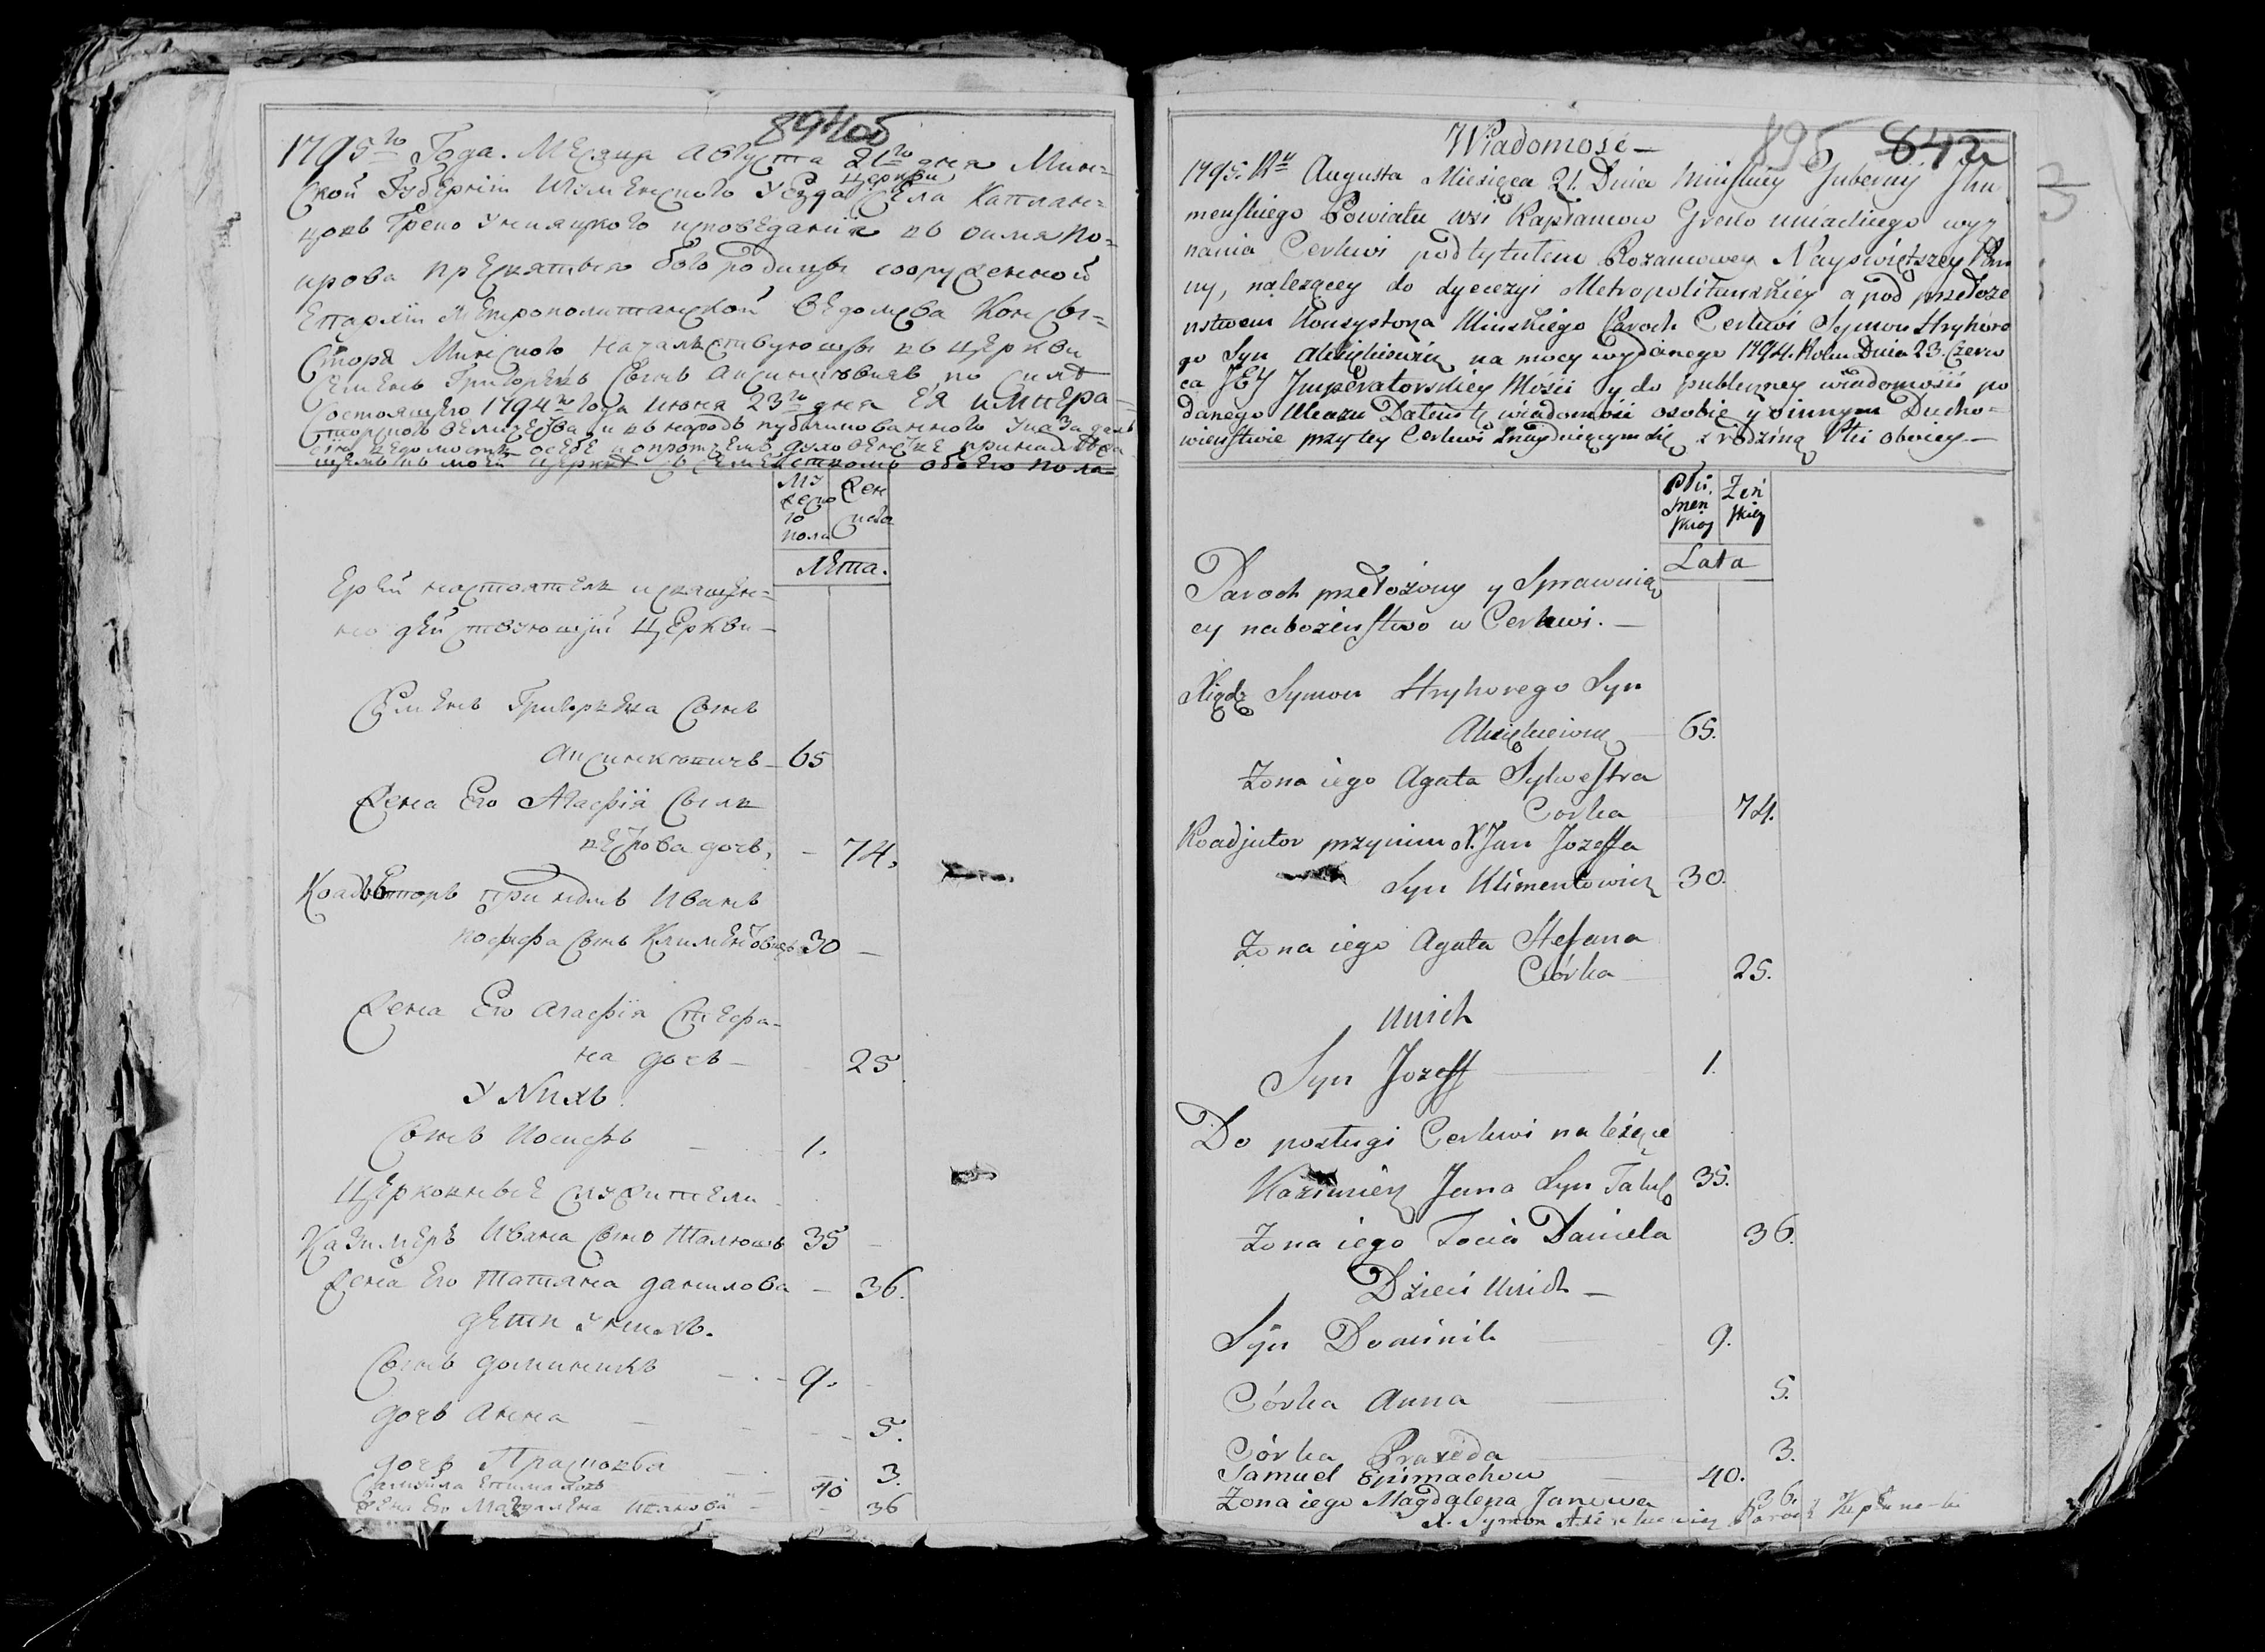 894об
1795го Года. Месяца Августа 21го дня Мин=
ской Губернии Игуменского уезда церкви села Каплан=
цовъ Греко Униацкого исповедания въ оимя По=
крова пресвятыя богородицы сооруженной
Епархіи Митрополитанской ведомсва Консы=
стора Минского началствующы въ церкви
Семенъ Григорьевъ Сынъ по силе
состоящего 1794го года Июня 23го дня Ея Импера=
торского величества и въ народъ публикованного указа
церкве обоего пола
Му
жеско
го
пола
Жен
ска
Лета.
Ерей настоятель и священ=
но действующий Церкви —
Семенъ Григорьева Сынъ
65
Жена Его Агафія Силь
вестрова дочь, — 74.
принятъ Иванъ
Иосифа Сынъ Климентовичъ 30 —
Жена Его Агафія Стефа-
на дочь — 25
У Nихъ.
Сынъ Иосифъ — 1.
Церковные служители
Казимеръ Ивана Сынъ Талюшъ 35 —
Жена Его Татяна данилова — 36.
дети у нихъ.
Сынъ доминикъ — 9.
дочь Анна — 5.
дочь — 3.
Самуйла Епимаховъ 40
Жена Его Магдалена Иванова — 36
895 842
Wiadomość —
1795. Rku Augusta Miesiąca 21. Dnia Minskiey Guberny Jhu
menskiego Powiatu wsi Kaplancow Greko uniackiego wyz
nania Cerkwi pod tytułem Rozancowey Nayświętszey Pan
ny, nalezącey do dyecezyi Metropolitanskiey a pod przełoze
nstwem Konsystorza Minskiego Paroch Cerkwi Symon Hryhore
go Syn na mocy wydanego 1794. Roku Dnia 23. Czerw
ca JEY Jmperatorskiey Mości y do publiczney wiadomości po
danego Ukazu wiadomość osobie y o innym Ducho=
wieństwie przy tey Cerkwi znayduiącym się z rodziną Płci oboiey —
Płci
men
skiey
Zeń
skiey
Lata
Paroch przełożony y Sprawuią
cy nabożeństwo w Cerkwi. —
Xiądz Symon Hryhorego Syn
65.
Żona iego Agata Sylwestra
Corka 74.
Koadjutor przyiem X. Jan Jozeffa
Syn Klimentowicz 30.
Żona iego Agata Stefana
Córka 25.
Unich
Syn Jozeff 1.
Do posługi Cerkwi należące
Kazimierz Jana Syn Talusz 35.
Żona iego Tacia Daniela 36.
Dzieci Unich —
Syn Dominik 9.
Córka Anna 5.
Córka Praxeda 3.
Samuel Epimachow 40.
Żona iego Magdalena Janowa 36.
X. Symon Paroch